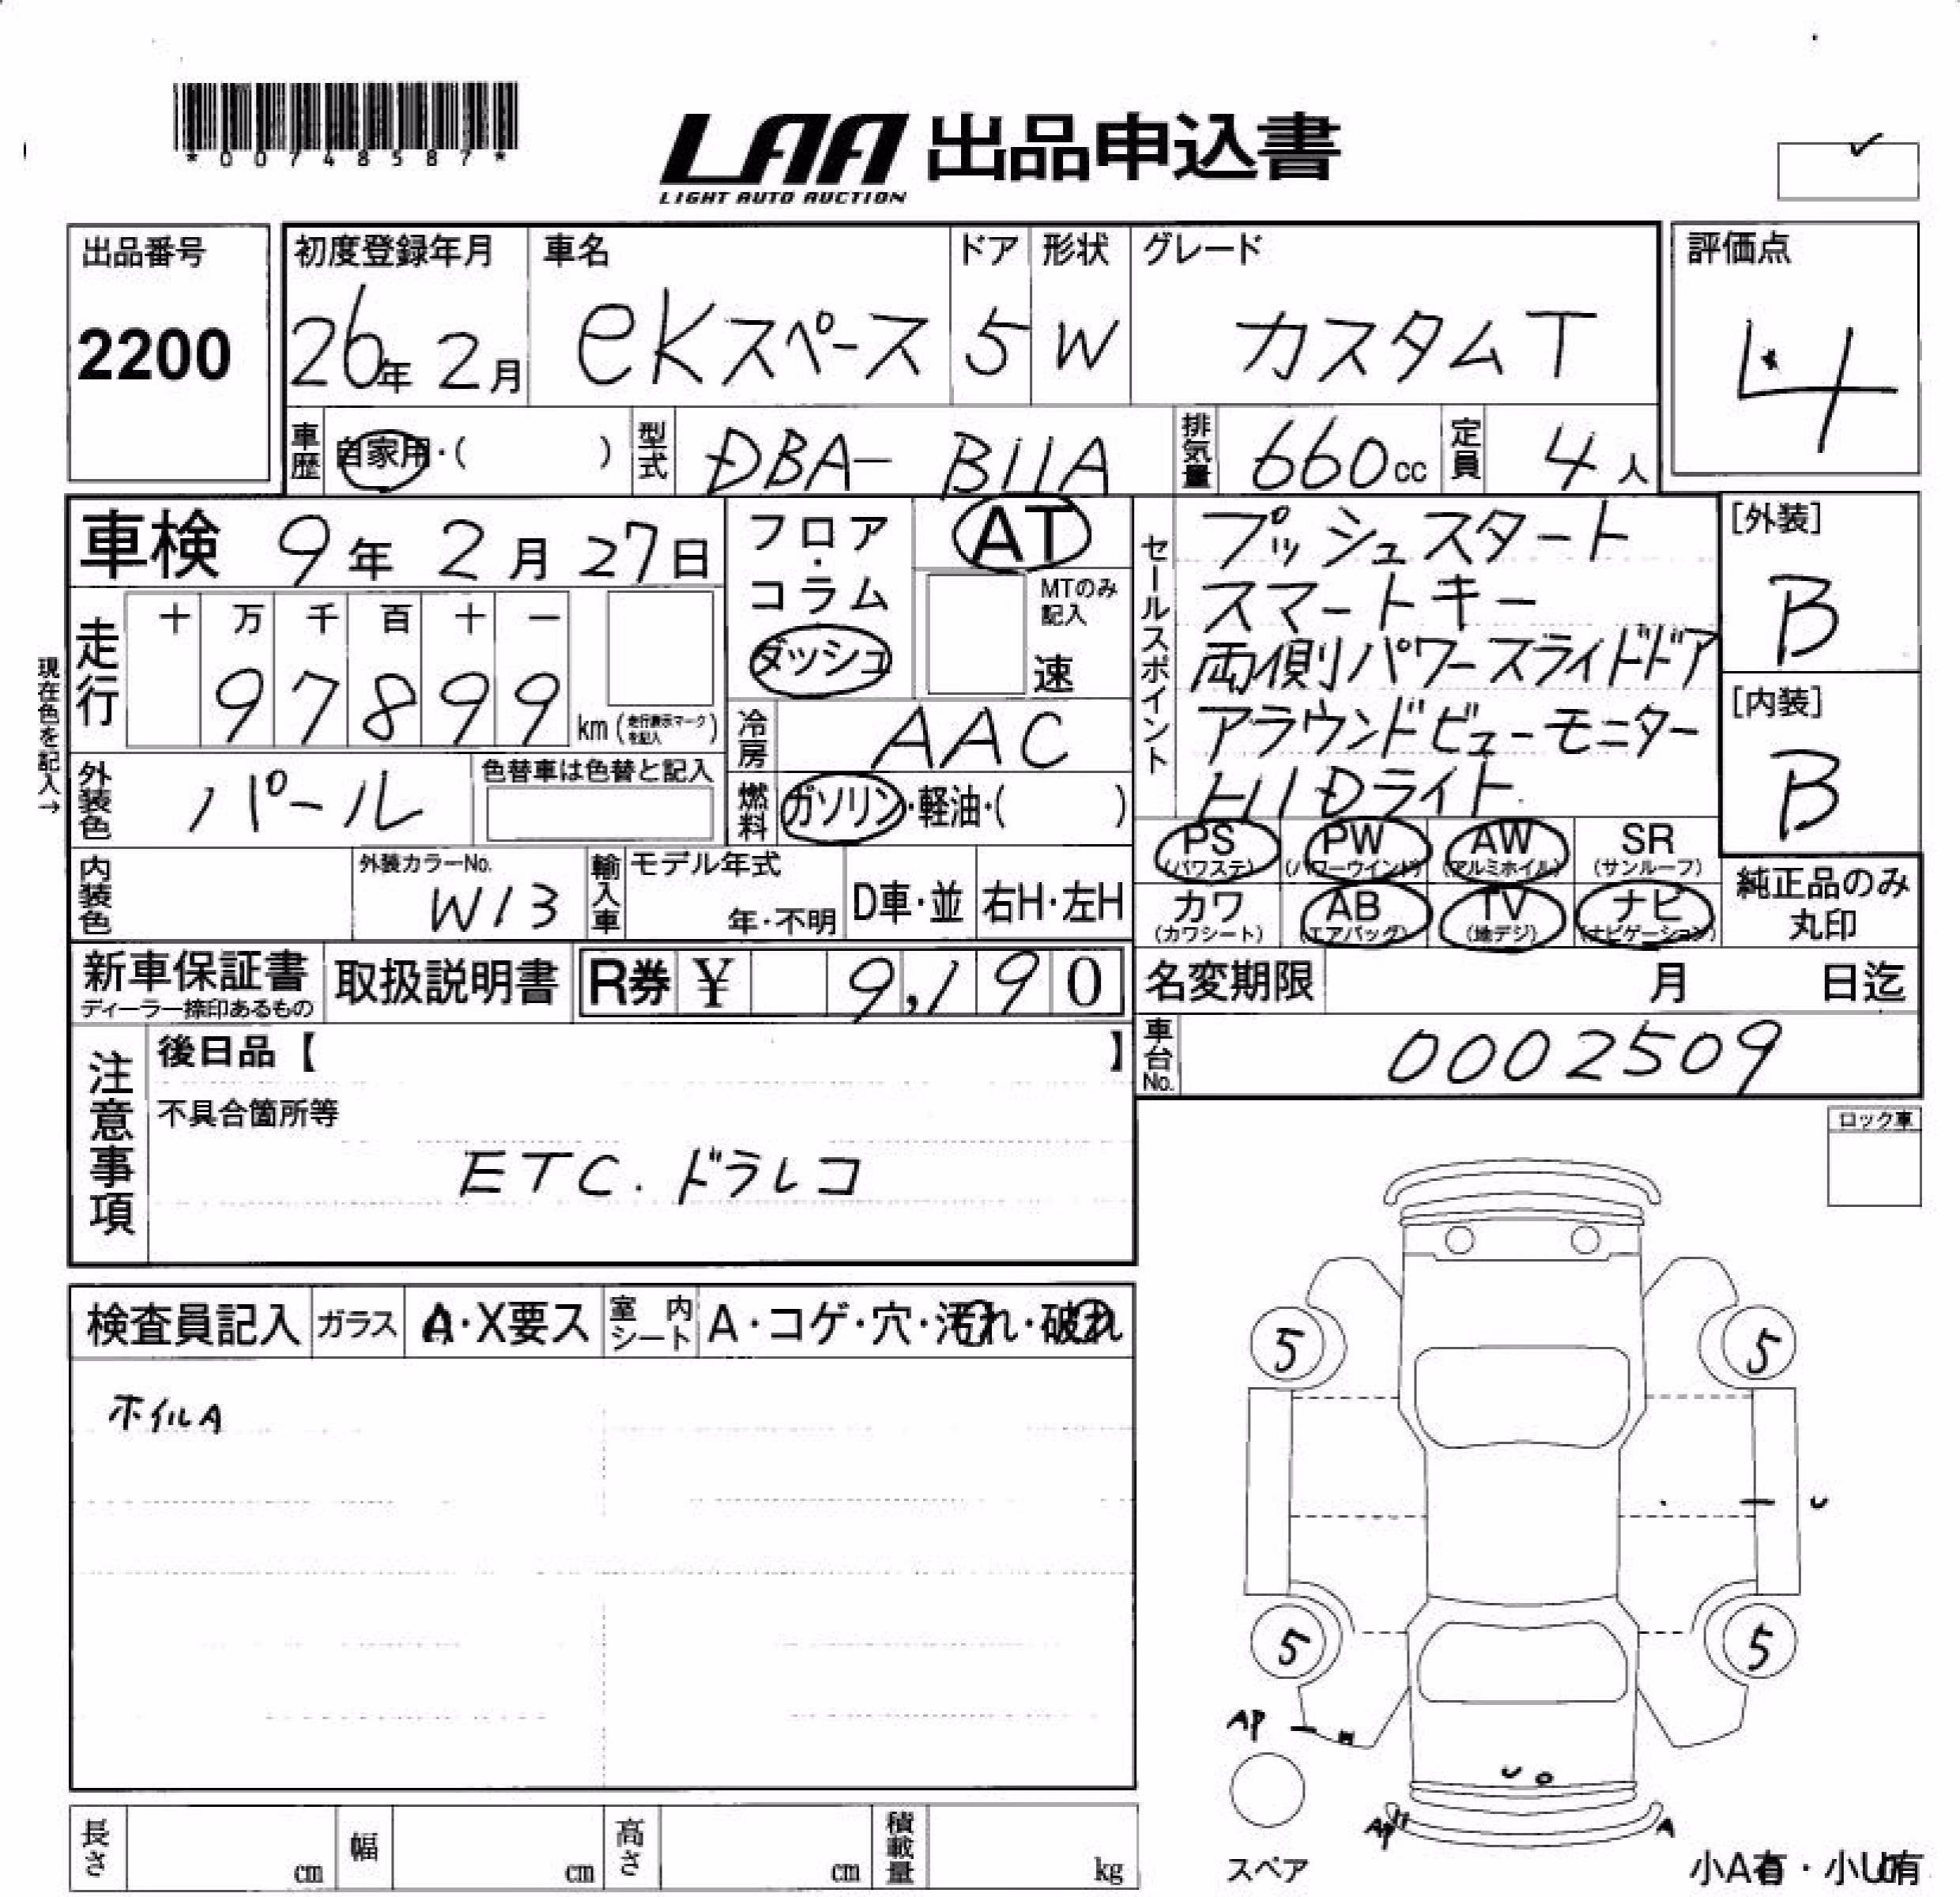 *00748587*
LAA 出品申込書
LIGHT AUTO AUCTION
出品番号
2200
初度登録年月
26年 2月
車名
eKスペース
ドア
5
形状
W
グレード
カスタムT
評価点
4
車歴 自家用・( )
型式 DBA- B11A
排気量 660cc
定員 4人
車検 9年 2月 27日
フロア・コラム
ダッシュ
AT
MTのみ記入
速
走行
十 万 千 百 十 一
9 7 8 9 9
km(走行表示マークを記入)
現在色を記入→
冷房 AAC
外装色 パール
色替車は色替と記入
燃料 ガソリン・軽油・( )
セールスポイント
プッシュスタート
スマートキー
両側パワースライドドア
アラウンドビューモニター
HIDライト
[外装]
B
[内装]
B
PS PW AW SR
(パワステ) (パワーウインド) (アルミホイル) (サンルーフ)
カワ AB TV ナビ
(カワシート) (エアバッグ) (地デジ) (ナビゲーション)
純正品のみ
丸印
内装色
外装カラーNo.
W13
輸入車
モデル年式
年・不明
D車・並
右H・左H
新車保証書
ディーラー捺印あるもの
取扱説明書
R券 ¥ 9,190
名変期限 月 日迄
車台No. 0002509
注意事項
後日品【 】
不具合箇所等
ETC. ドラレコ
ロック車
検査員記入
ガラス A・X要ス
室内シート A・コゲ・穴・汚れ・破れ
ホイルA
5 5
U
5 5
AP
U
AP A
スペア
小A有・小U有
長さ cm
幅 cm
高さ cm
積載量 kg